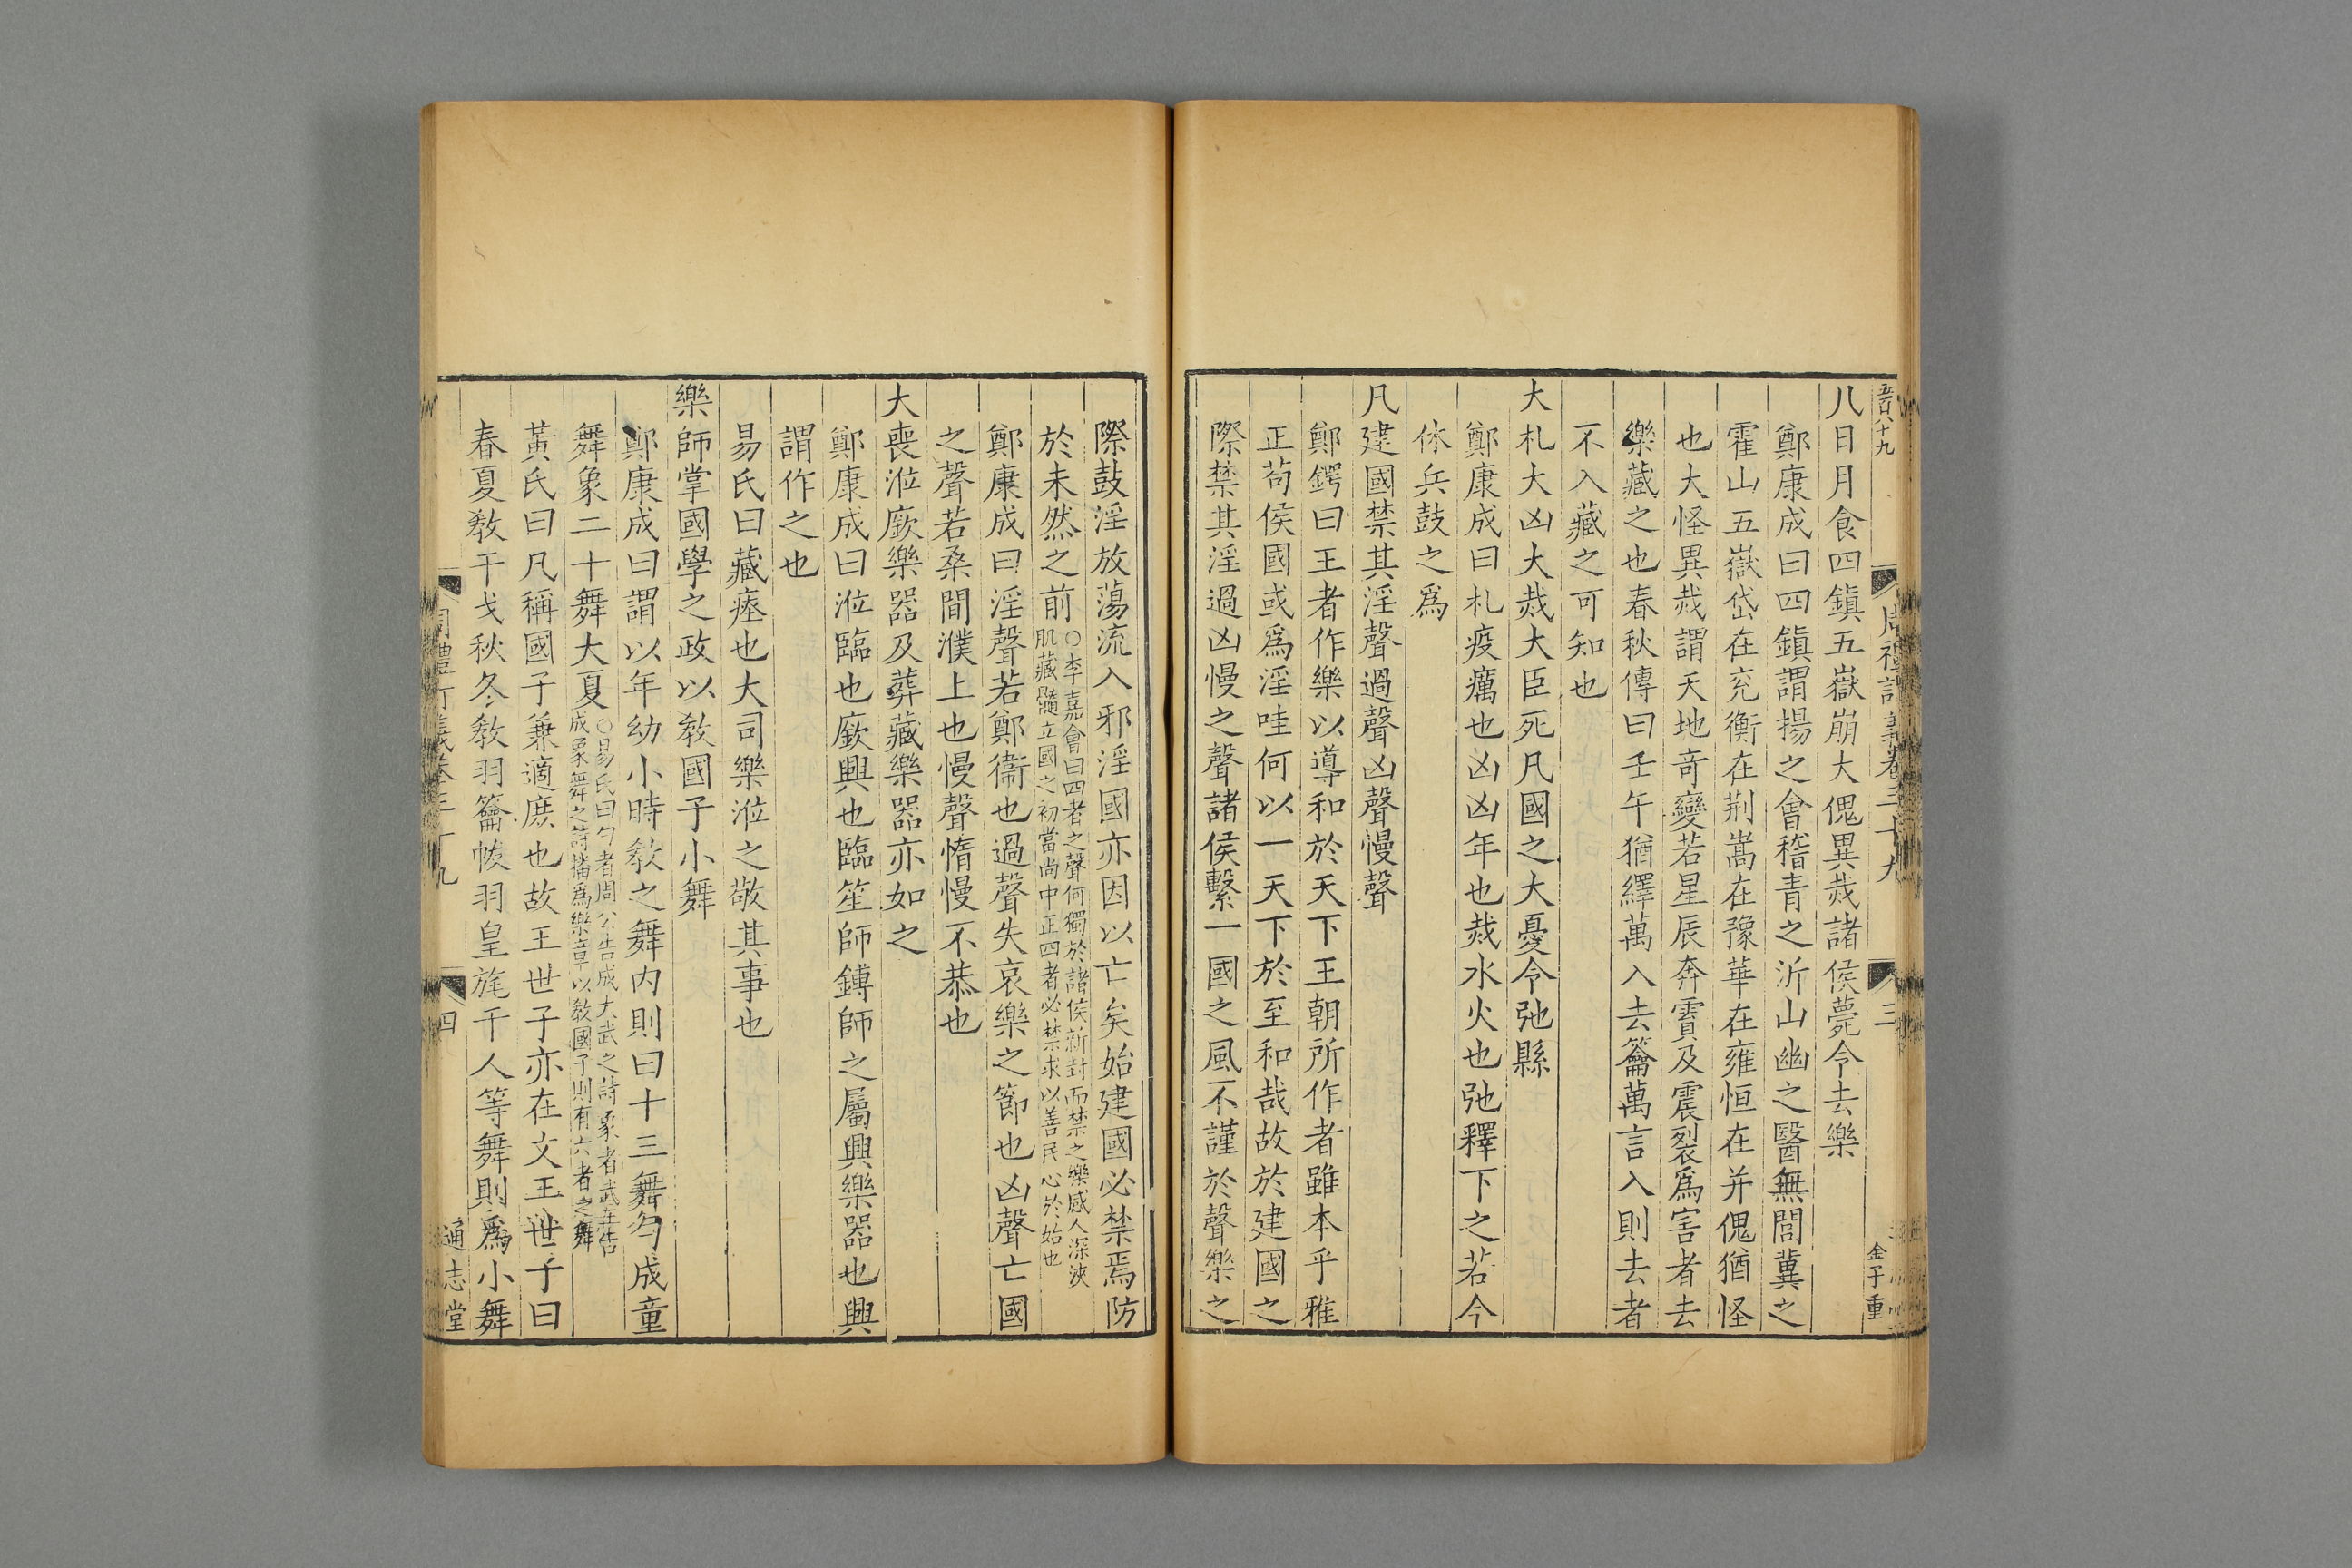 周禮訂義卷三十九
三
金子重
八日月食四鎮五嶽崩大傀異烖諸侯薨令去樂
鄭康成曰四鎮謂揚之會稽青之沂山幽之醫無閭冀之
霍山五嶽岱在兖衡在荆嵩在豫華在雍恒在并傀猶怪
也大怪異烖謂天地奇變若星辰奔霣及震裂爲害者去
樂藏之也春秋傳曰壬午猶繹萬入去籥萬言入則去者
不入藏之可知也
大札大凶大烖大臣死凡國之大憂令弛縣
鄭康成曰札疫癘也凶凶年也烖水火也弛釋下之若今
休兵鼓之爲
凡建國禁其淫聲過聲凶聲慢聲
鄭鍔曰王者作樂以導和於天下王朝所作者雖本乎雅
正苟侯國或爲淫哇何以一天下於至和哉故於建國之
際禁其淫過凶慢之聲諸侯繫一國之風不謹於聲樂之
際鼓淫放蕩流入邪淫國亦因以亡矣始建國必禁焉防
於未然之前○李嘉會曰四者之聲何獨於諸侯新封而禁之樂感人深浹
肌藏髓立國之初當尚中正四者必禁求以善民心於始也
鄭康成曰淫聲若鄭衞也過聲失哀樂之節也凶聲亡國
之聲若桑間濮上也慢聲惰慢不恭也
大喪涖廞樂器及葬藏樂器亦如之
鄭康成曰涖臨也廞興也臨笙師鎛師之屬興樂器也興
謂作之也
易氏曰藏瘞也大司樂涖之敬其事也
樂師掌國學之政以敎國子小舞
鄭康成曰謂以年幼小時敎之舞内則曰十三舞勺成童
舞象二十舞大夏○易氏曰勺者周公告成大武之詩象者武王告
成象舞之詩播爲樂章以敎國子則有六者之舞
黃氏曰凡稱國子兼適庶也故王世子亦在文王世子曰
春夏敎干戈秋冬敎羽籥帗羽皇旄干人等舞則爲小舞
周禮訂義卷三十九
四
通志堂